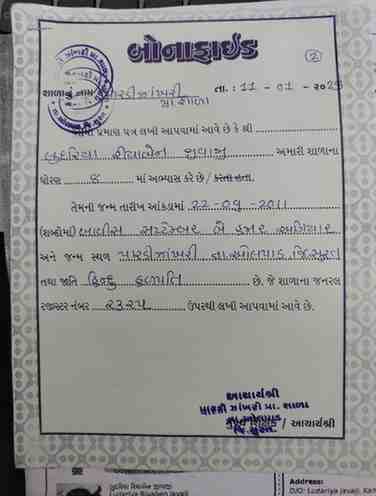 બોનાફાઈડ
૨
શાળાનું નામ પારડીઝાંખરી
પ્રા. શાળા
તા. : 11 - 01 - ૨૦૨
આથી પ્રમાણ પત્ર લખી આપવામાં આવે છે કે શ્રી
લુદરિયા રીયાબેન જીવાજી અમારી શાળાના
ધોરણ ૪ માં અભ્યાસ કરે છે / કરતા હતા.
તેમની જન્મ તારીખ આંકડામાં 22-09-2011
(શબ્દોમાં) બાવીસ સપ્ટેમ્બર બે હજાર અગિયાર
અને જન્મ સ્થળ પારડીઝાંખરી તા.ઓલપાડ જિ.સુરત
તથા જાતિ હિન્દુ હળપતિ છે. જે શાળાના જનરલ
રજીસ્ટર નંબર ૨૩૨૫ ઉપરથી લખી આપવામાં આવે છે.
આચાર્યશ્રી
પારડી ઝાંખરી પ્રા. શાળા
તા. ઓલપાડ
જિ. સુરત / આચાર્યશ્રી
Address: